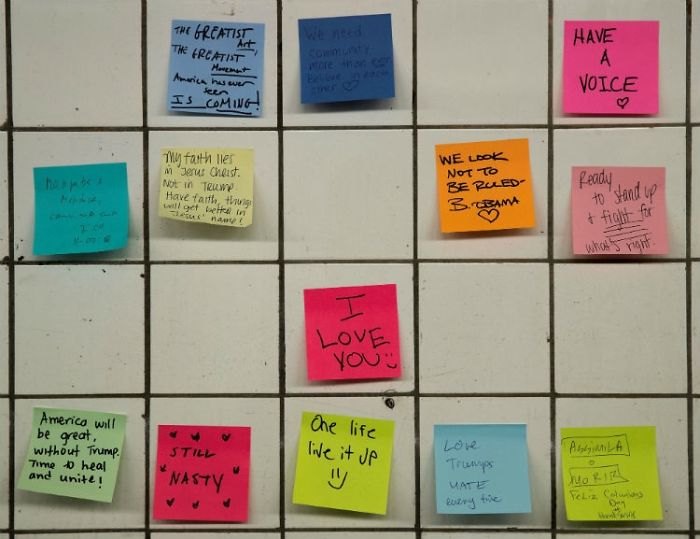 THE GREATIST
Art,
THE GREATIST
Movement
America has ever
seen
IS COMING!
We need
community
more than ever
Believe in each
other ♡
HAVE
A
VOICE
♡
My faith lies
in Jesus Christ.
Not in Trump.
Have faith, things
will get better in
"Jesus" name!
WE LOOK
NOT TO
BE RULED-
B. OBAMA
♡
Ready
to stand up
+ fight for
what's right.
I
LOVE
YOU :)
America will
be great,
without Trump.
Time to heal
and unite!
STILL
NASTY
One life
live it up
Love
Trumps
HATE
every time
ASSIMILA
O
MORIR
Feliz Columbus
Day